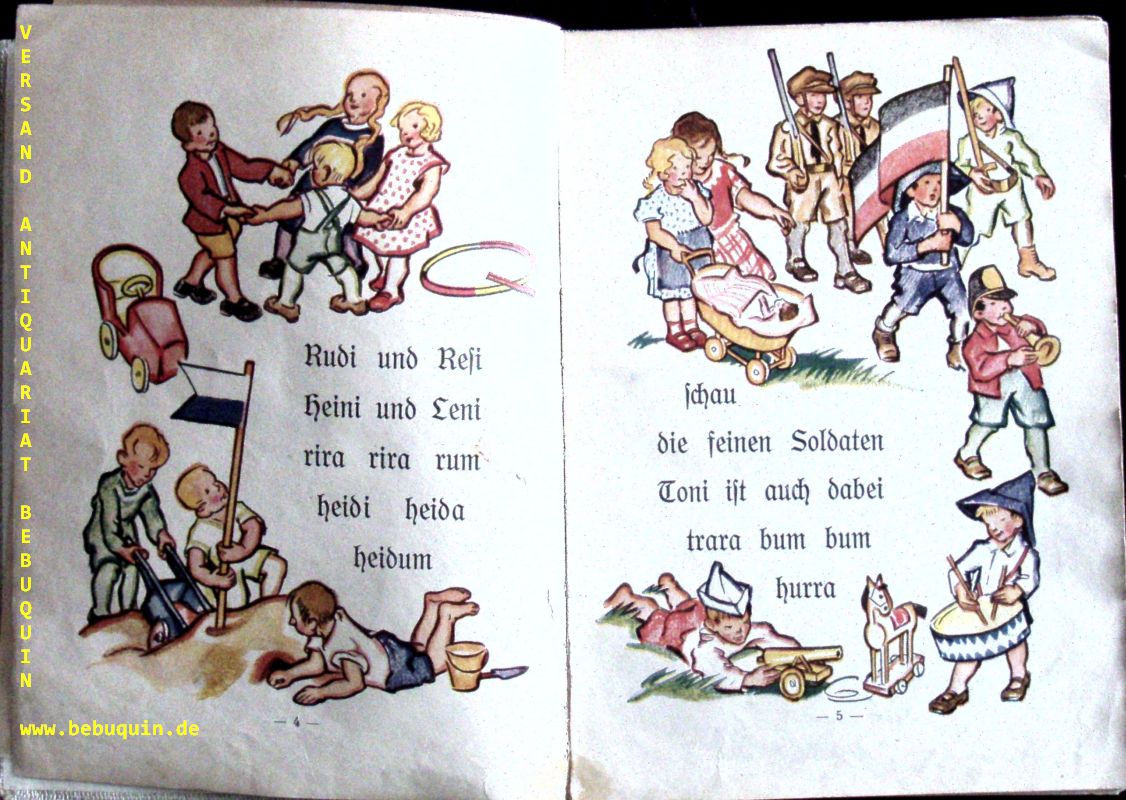 VERSAND ANTIQUARIAT BEBUQUIN
www.bebuquin.de
Rudi und Resi
Heini und Leni
rira rira rum
heidi heida
heidum
— 4 —
schau
die feinen Soldaten
Toni ist auch dabei
trara bum bum
hurra
— 5 —